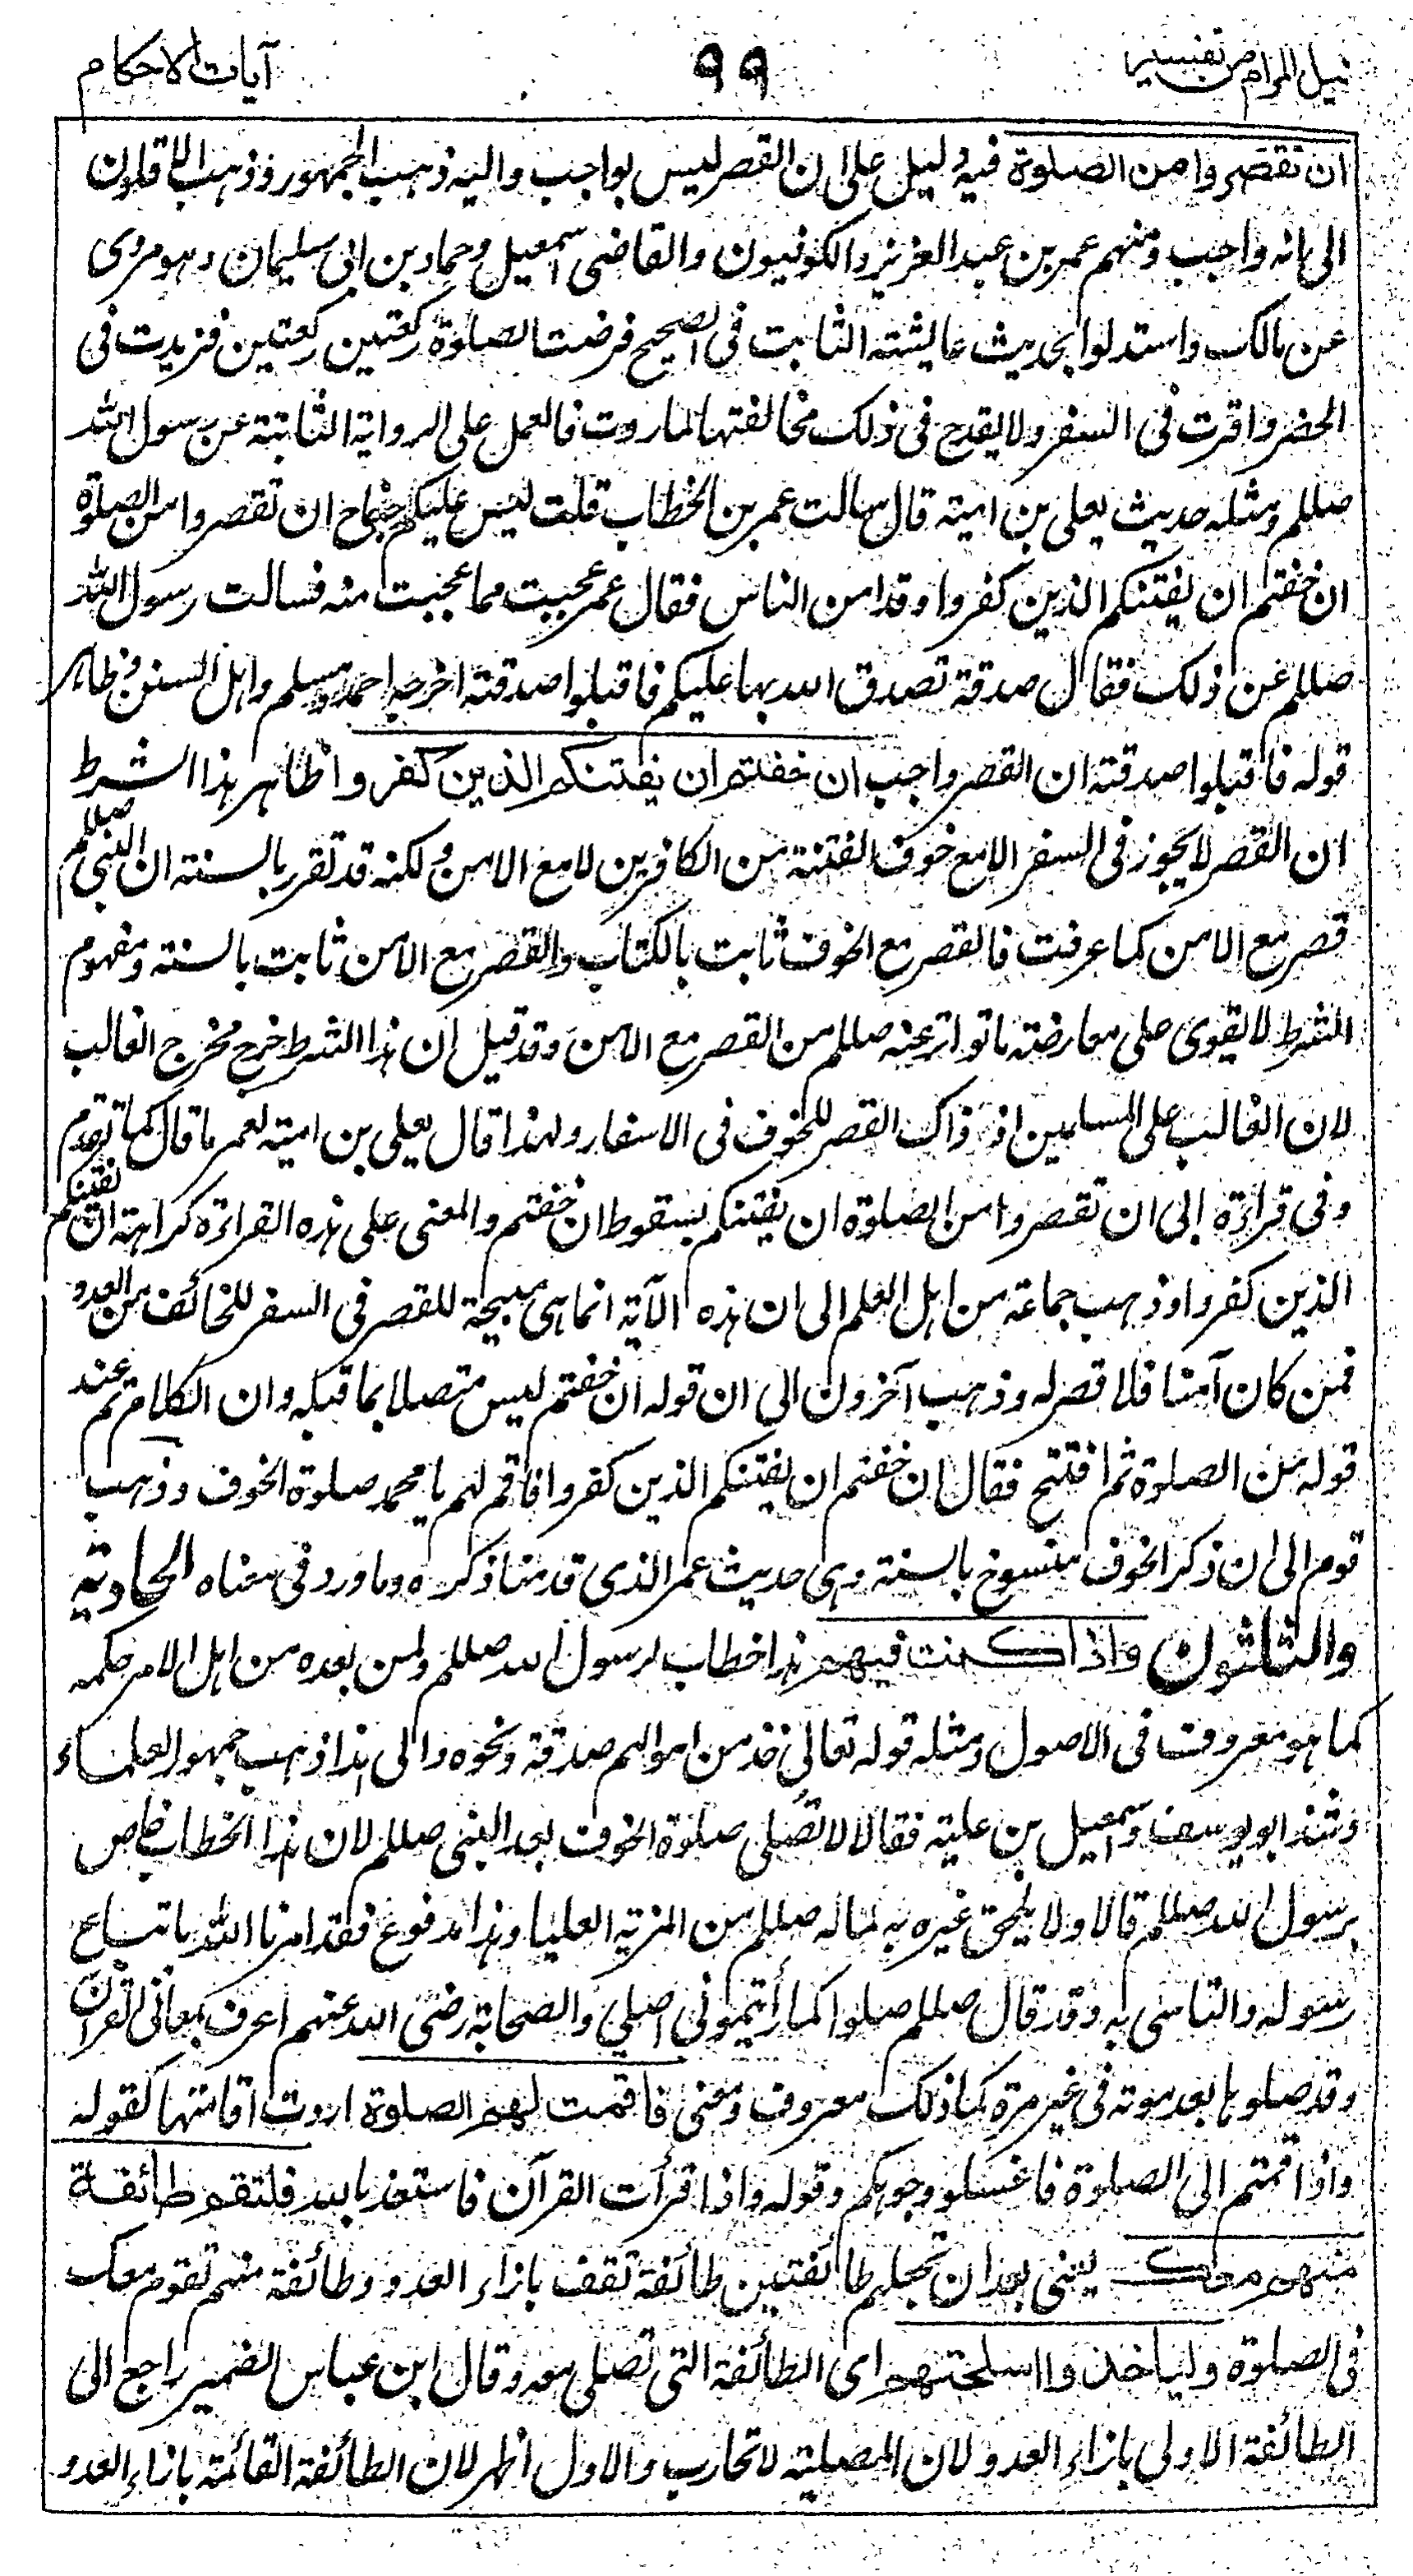 نيل المرام من تفسير ٩٩ آيات الاحكام
ان تقصروا من الصلوة فيه دليل على ان القصر ليس بواجب واليه ذهب الجمهور وذهب الاقلون
الى انه واجب ومنهم عمر بن عبد العزيز والكوفيون والقاضى اسمعيل وحماد بن ابى سليمان وهو مروى
عن مالك واستدلوا بحديث عائشة الثابت فى الصحيح فرضت الصلوة ركعتين ركعتين فزيدت فى
الحضر واقرت فى السفر ولا يقدح فى ذلك مخالفتها لما روت فالعمل على الرواية الثابتة عن رسول الله
صللم ومثله حديث يعلى بن امية قال سالت عمر بن الخطاب قلت ليس عليكم جناح ان تقصروا من الصلوة
ان خفتم ان يفتنكم الذين كفروا وقد امن الناس فقال عمر عجبت مما عجبت منه فسالت رسول الله
صللم عن ذلك فقال صدقة تصدق الله بها عليكم فاقبلوا صدقته اخرجه احمد ومسلم واهل السنن وظاهر
قوله فاقبلوا صدقته ان القصر واجب ان خفتم ان يفتنكم الذين كفروا ظاهر هذا الشرط
ان القصر لا يجوز فى السفر الا مع خوف الفتنة من الكافرين لا مع الامن ولكنه قد تقرر بالسنة ان النبى صللم
قصر مع الامن كما عرفت فالقصر مع الخوف ثابت بالكتاب والقصر مع الامن ثابت بالسنة ومفهوم
الشرط لا يقوى على معارضة ما تواتر عنه صللم من القصر مع الامن وقد قيل ان هذا الشرط خرج مخرج الغالب
لان الغالب على المسلمين اذ ذاك القصر للخوف فى الاسفار ولهذا قال يعلى بن امية لعمر ما قال كما تقدم
وفى قراءة ابى ان تقصروا من الصلوة ان يفتنكم بسقوط ان خفتم والمعنى على هذه القراءة كراهة ان يفتنكم
الذين كفروا وذهب جماعة من اهل العلم الى ان هذه الآية انما هى مبيحة للقصر فى السفر للخائف من العدو
فمن كان آمنا فلا قصر له وذهب آخرون الى ان قوله ان خفتم ليس متصلا بما قبله وان الكلام تم عند
قوله من الصلوة ثم افتتح فقال ان خفتم ان يفتنكم الذين كفروا فاقم لهم يا محمد صلوة الخوف وذهب
قوم الى ان ذكر الخوف منسوخ بالسنة وهى حديث عمر الذى قدمنا ذكره وما ورد فى معناه الحادية
والثلثون واذا كنت فيهم هذا خطاب لرسول الله صللم ولمن بعده من اهل الامر حكمه
كما هو معروف فى الاصول ومثله قوله تعالى خذ من اموالهم صدقة ونحوه والى هذا ذهب جمهور العلماء
وشذ ابو يوسف واسمعيل بن علية فقالا لا تصلى صلوة الخوف بعد النبى صللم لان هذا الخطاب خاص
برسول الله صللم قالا ولا يلحق غيره به لما له صللم من المزية العليا وهذا مدفوع فقد امرنا الله باتباع
رسوله والتاسى به وقد قال صللم صلوا كما رأيتمونى اصلي والصحابة رضى الله عنهم اعرف بمعانى القرآن
وقد صلوها بعد موته فى غير مرة كما ذلك معروف ومعنى فاقمت لهم الصلوة اردت اقامتها كقوله
واذا قمتم الى الصلوة فاغسلوا وجوهكم وقوله واذا قرأت القرآن فاستعذ بالله فلتقم طائفة
منهم معك يعنى بعد ان تجعلهم طائفتين طائفة تقف بازاء العدو وطائفة منهم تقوم معك
فى الصلوة ولياخذوا اسلحتهم اى الطائفة التى تصلى معه وقال ابن عباس الضمير راجع الى
الطائفة الاولى بازاء العدو لان المصلية لا تحارب والاول اظهر لان الطائفة القائمة بازاء العدو